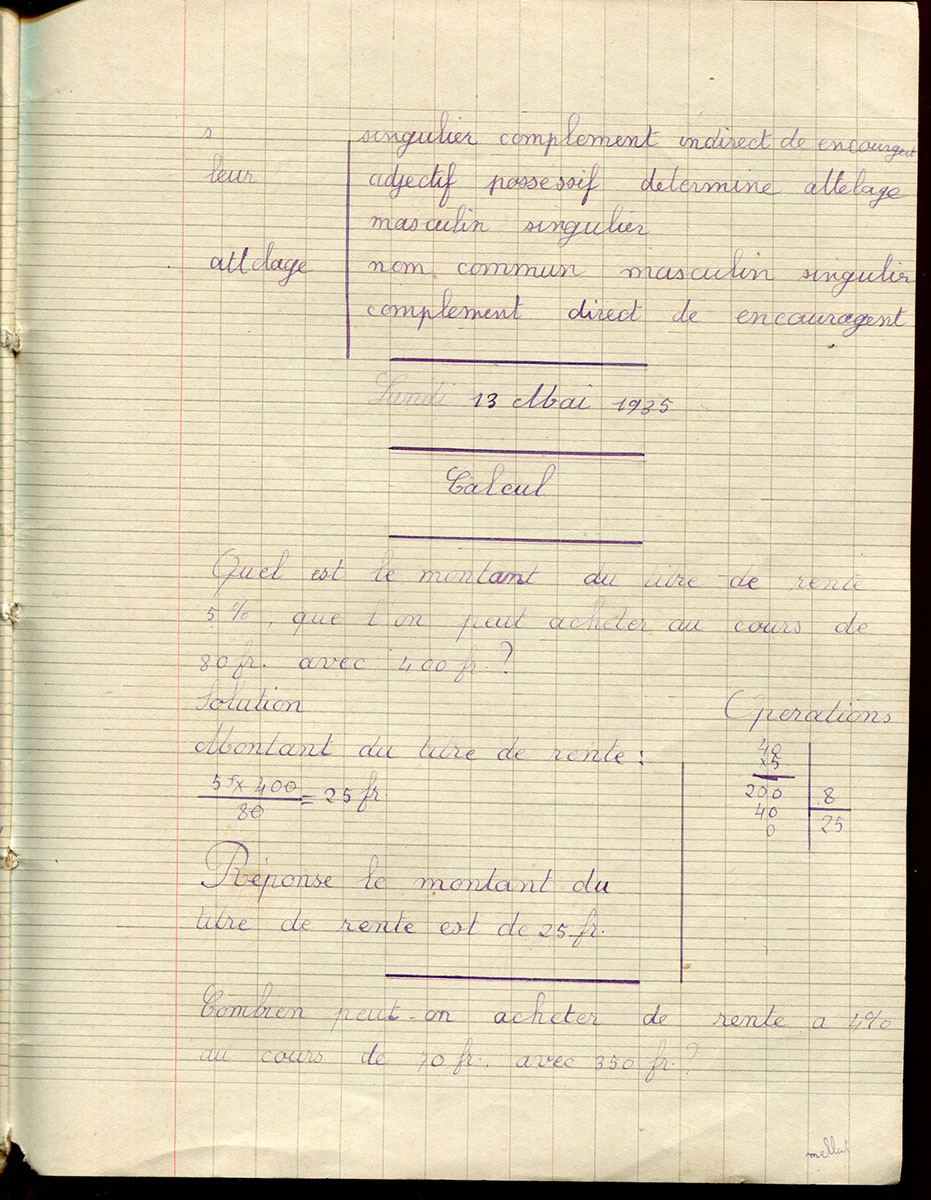 s singulier complement indirect de encourgent
leur adjectif possessif determine attelage
masculin singulier
attelage nom commun masculin singulir
complement direct de encouragent
Lundi 13 Mai 1935
Calcul
Quel est le montant du titre de rente
5 %, que l on peut acheter au cours de
80 fr. avec 400 fr. ?
Solution Operations
Montant du titre de rente :
5 x 400
80
= 25 fr
40
x5
200 8
40 25
0
Réponse le montant du
titre de rente est de 25 fr.
Combien peut-on acheter de rente a 4%
au cours de 70 fr., avec 350 fr. ?